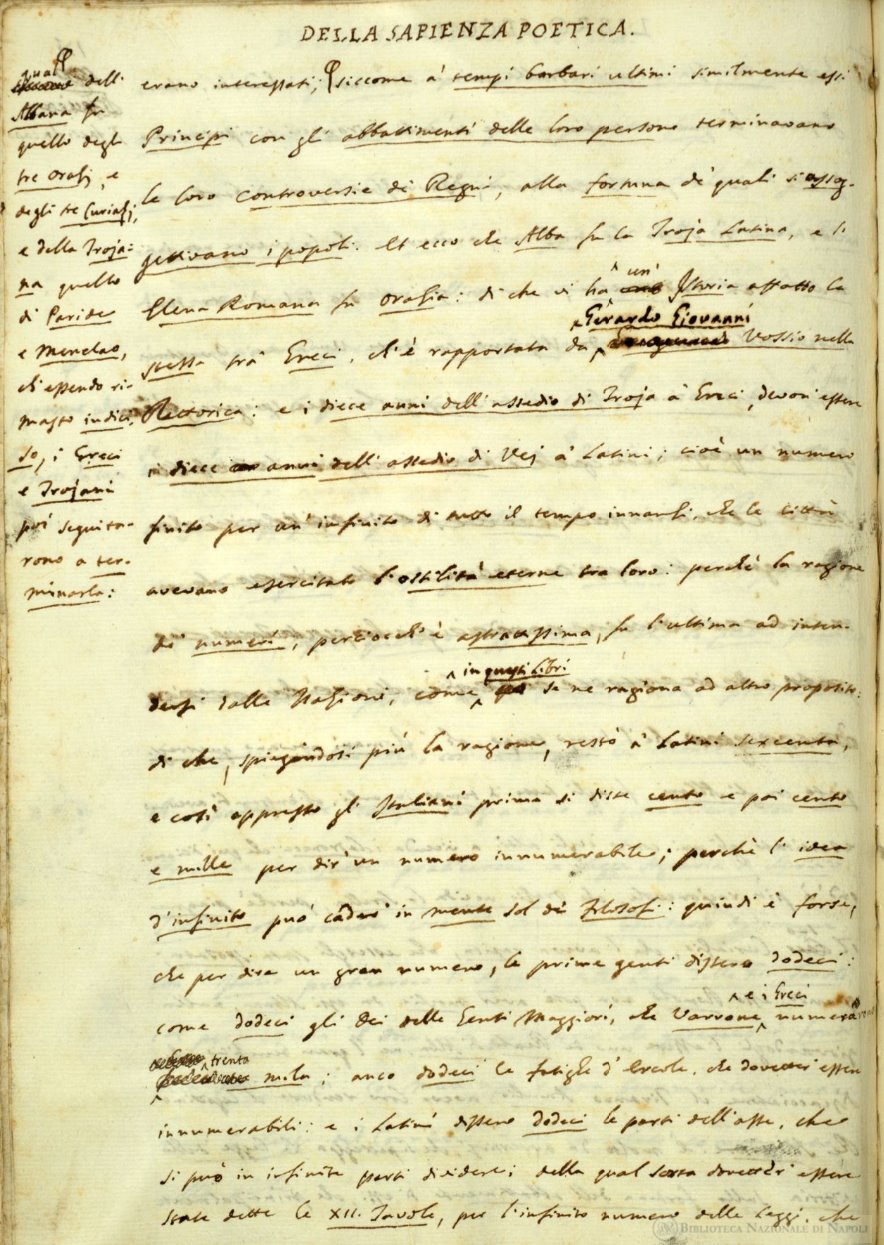 DELLA SAPIENZA POETICA.
qual dell'
Albana fu
quello degli
tre Orazj, e
degli tre Curiazj,
e della Troja:
na quello
di Paride
e Menelao,
ch'essendo ri-
masto indici
so, i Greci
e Trojani
poi seguita-
rono a ter-
minarla:
erano interessati; siccome a' tempi barbari ultimi similmente essi
Principi con gli abbattimenti delle loro persone terminavano
le loro controversie di Regni, alla fortuna de' quali si assog-
gettivano i popoli. Et ecco che Alba fu la Troja Latina, e l'
Elena Romana fu Orazia: di che vi ha un' Istoria affatto la
stessa tra' Greci, ch'è rapportata da Gerardo Giovanni Vossio nella
Rettorica: e i diece anni dell'assedio di Troja a' Greci, devon' essere
i diece anni dell'assedio di Vej a' Latini; cioè un numero
finito per un' infinito di tutto il tempo innanzi, che le città
avevano esercitato l'ostilità eterne tra loro: perchè la ragione
de' numeri, perciocch'è astrattissima, fu l'ultima ad inten-
dersi dalle Nazioni, come in questi Libri se ne ragiona ad altro proposito:
di che, spiegandosi più la ragione, restò a' Latini sexcenta,
e così appresso gl' Italiani prima si disse cento e poi cento
e mille per dir' un numero innumerabile; perchè l' idea
d'infinito può cader' in mente sol de' Filosofi: quindi è forse,
che per dire un gran numero, le prime genti dissero dodeci:
come dodeci gli Dei delle Genti Maggiori, che Varrone e i Greci numerarono
trenta mila; anco dodeci le fatighe d' Ercole, che dovetter' essere
innumerabili: e i Latini dissero dodeci le parti dell'asse, che
si può in infinite parti dividere; della qual sorta dovetter' essere
state dette le XII. Tavole, per l'infinito numero delle Leggi, che
BIBLIOTECA NAZIONALE DI NAPOLI